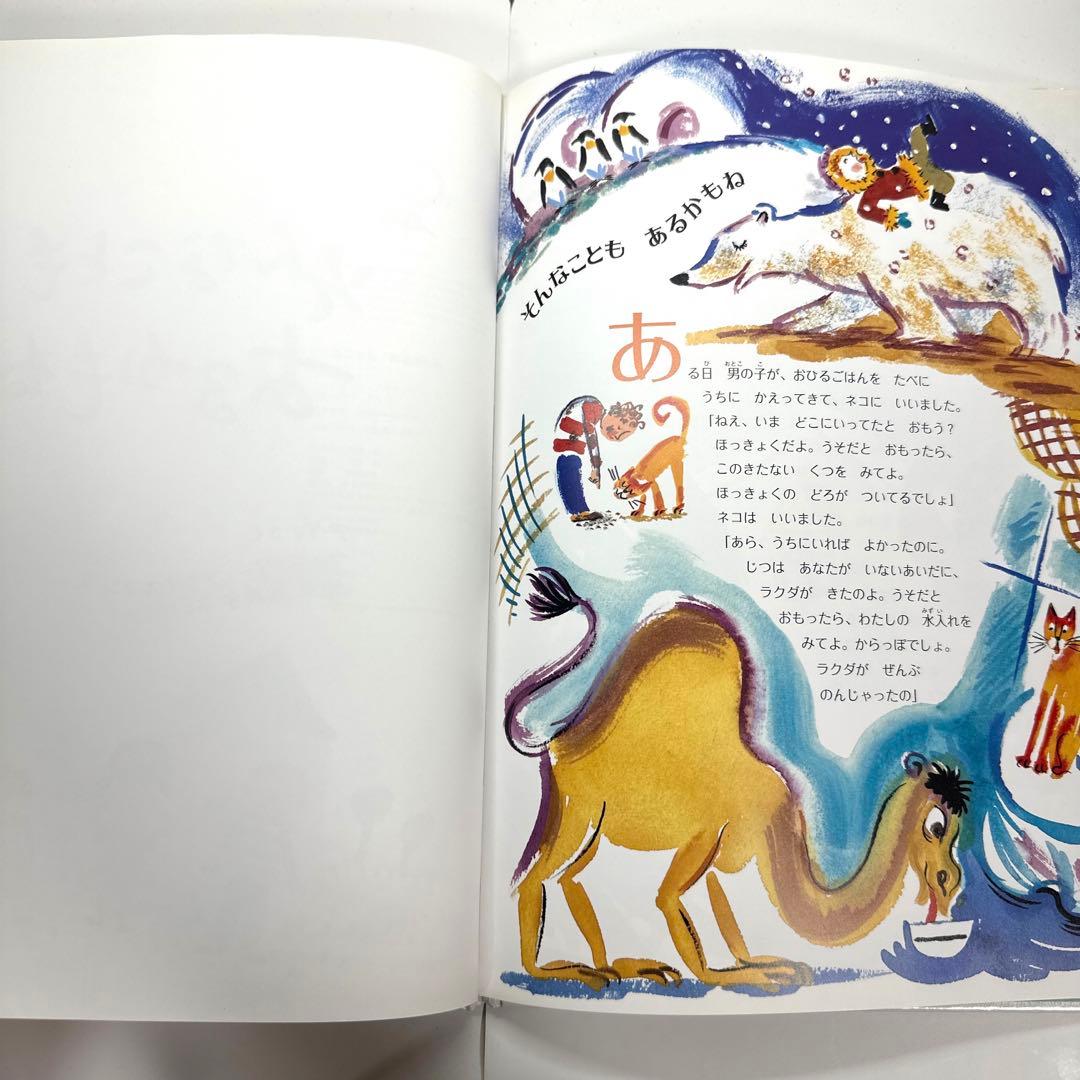 そんなことも あるかもね
ある日 男の子が、おひるごはんを たべに
うちに かえってきて、ネコに いいました。
「ねえ、いま どこにいってたと おもう?
ほっきょくだよ。うそだと おもったら、
このきたない くつを みてよ。
ほっきょくの どろが ついてるでしょ」
ネコは いいました。
「あら、うちにいれば よかったのに。
じつは あなたが いないあいだに、
ラクダが きたのよ。うそだと
おもったら、わたしの 水入れを
みてよ。からっぽでしょ。
ラクダが ぜんぶ
のんじゃったの」